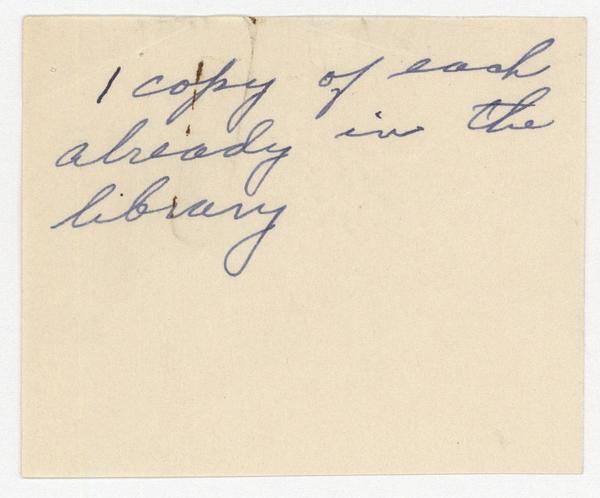 1 copy of each
already in the
library